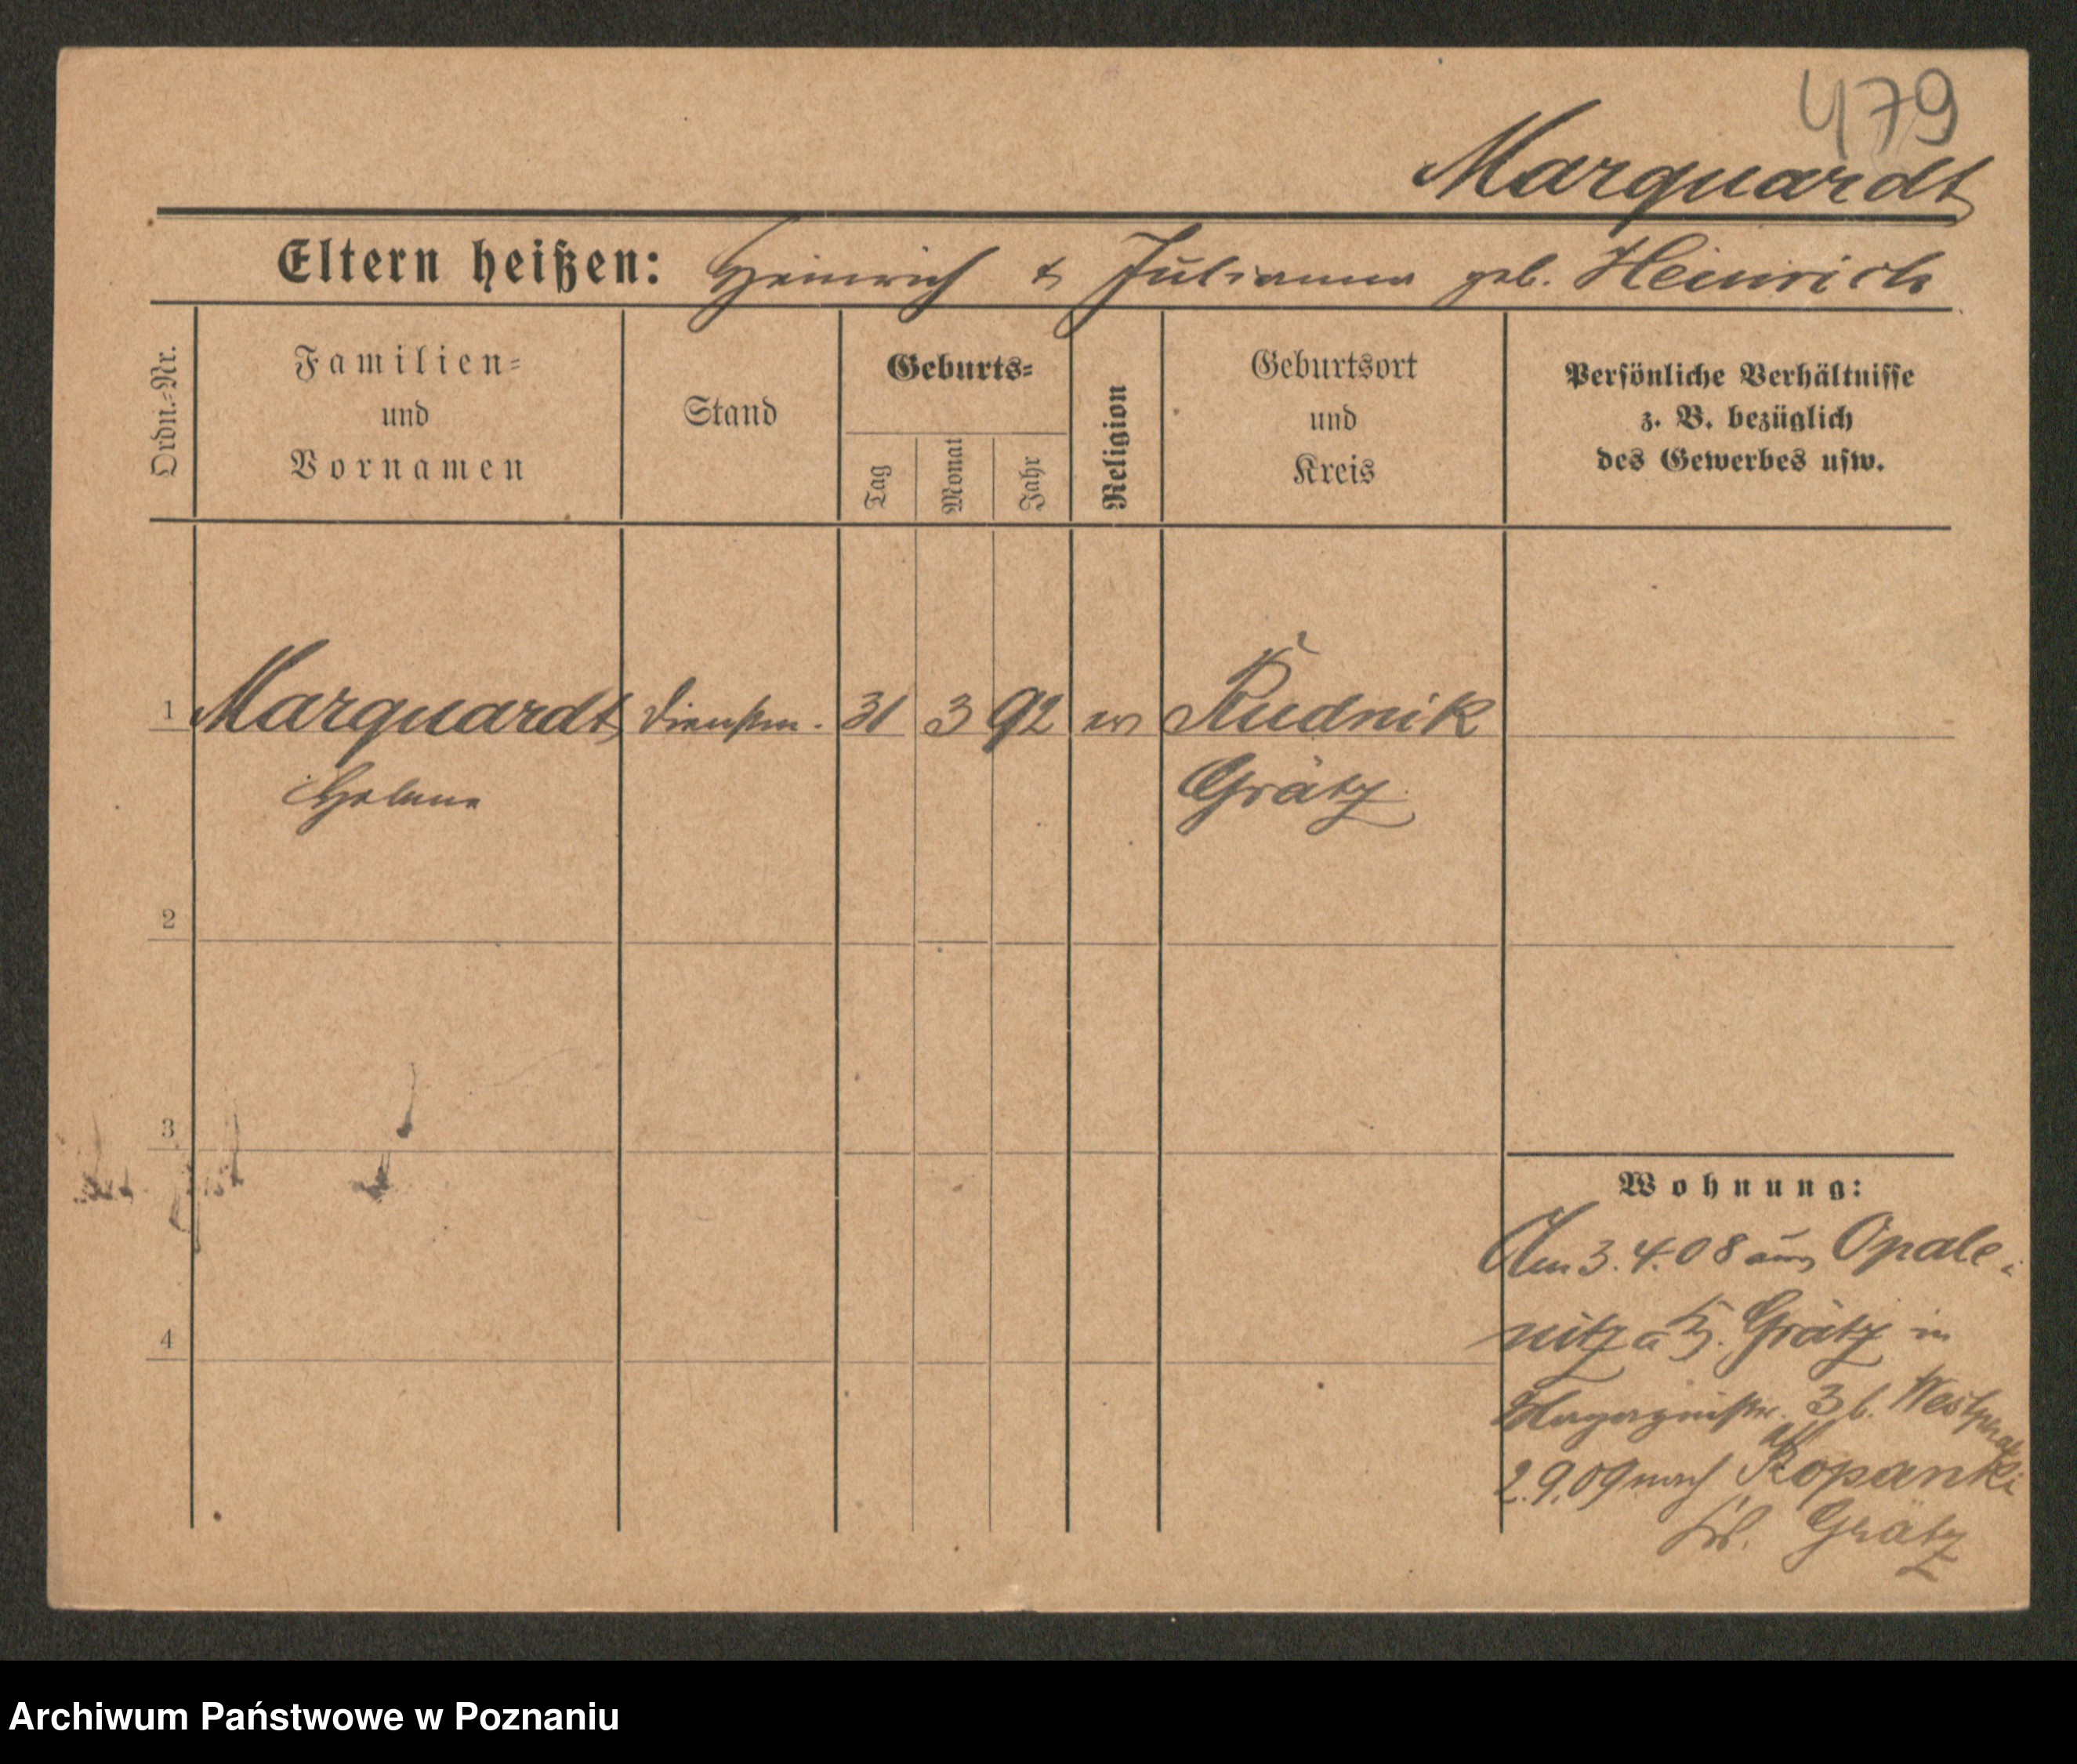 479
Marquardt
Eltern heißen: Heinrich & Julianna geb. Heinrich
Ordn.-Nr.
Familien-
und
Vornamen
Stand
Geburts-
Tag
Monat
Jahr
Religion
Geburtsort
und
Kreis
Persönliche Verhältnisse
z. B. bezüglich
des Gewerbes usw.
1 Marquardt Dienstm. 31 3 92 ev Rudnik
Helene Grätz
2
3
4
Wohnung:
Am 3.4.08 aus Opale-
nitza Kr. Grätz in
3 b.
2.9.09 nach Kopanki
Kr. Grätz
Archiwum Państwowe w Poznaniu